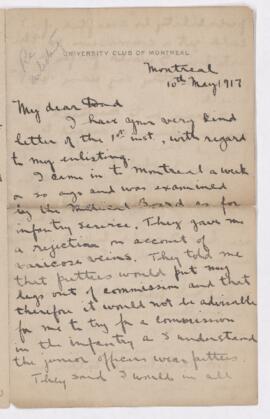 Re
enlisting
UNIVERSITY CLUB OF MONTREAL
Montreal
10th May 1917
My dear Dond
I have your very kind
letter of the 1st inst, with regard
to my enlisting.
I came in to Montreal a week
or so ago and was examined
by the Medical Board as for
infantry service. They gave me
a rejection on account of
varicose veins. They told me
that putties would put my
legs out of commission and that
therefore it would not be advisable
for me to try for a commission
in the infantry as I understand
the junior officers wear putties.
They said I would in all